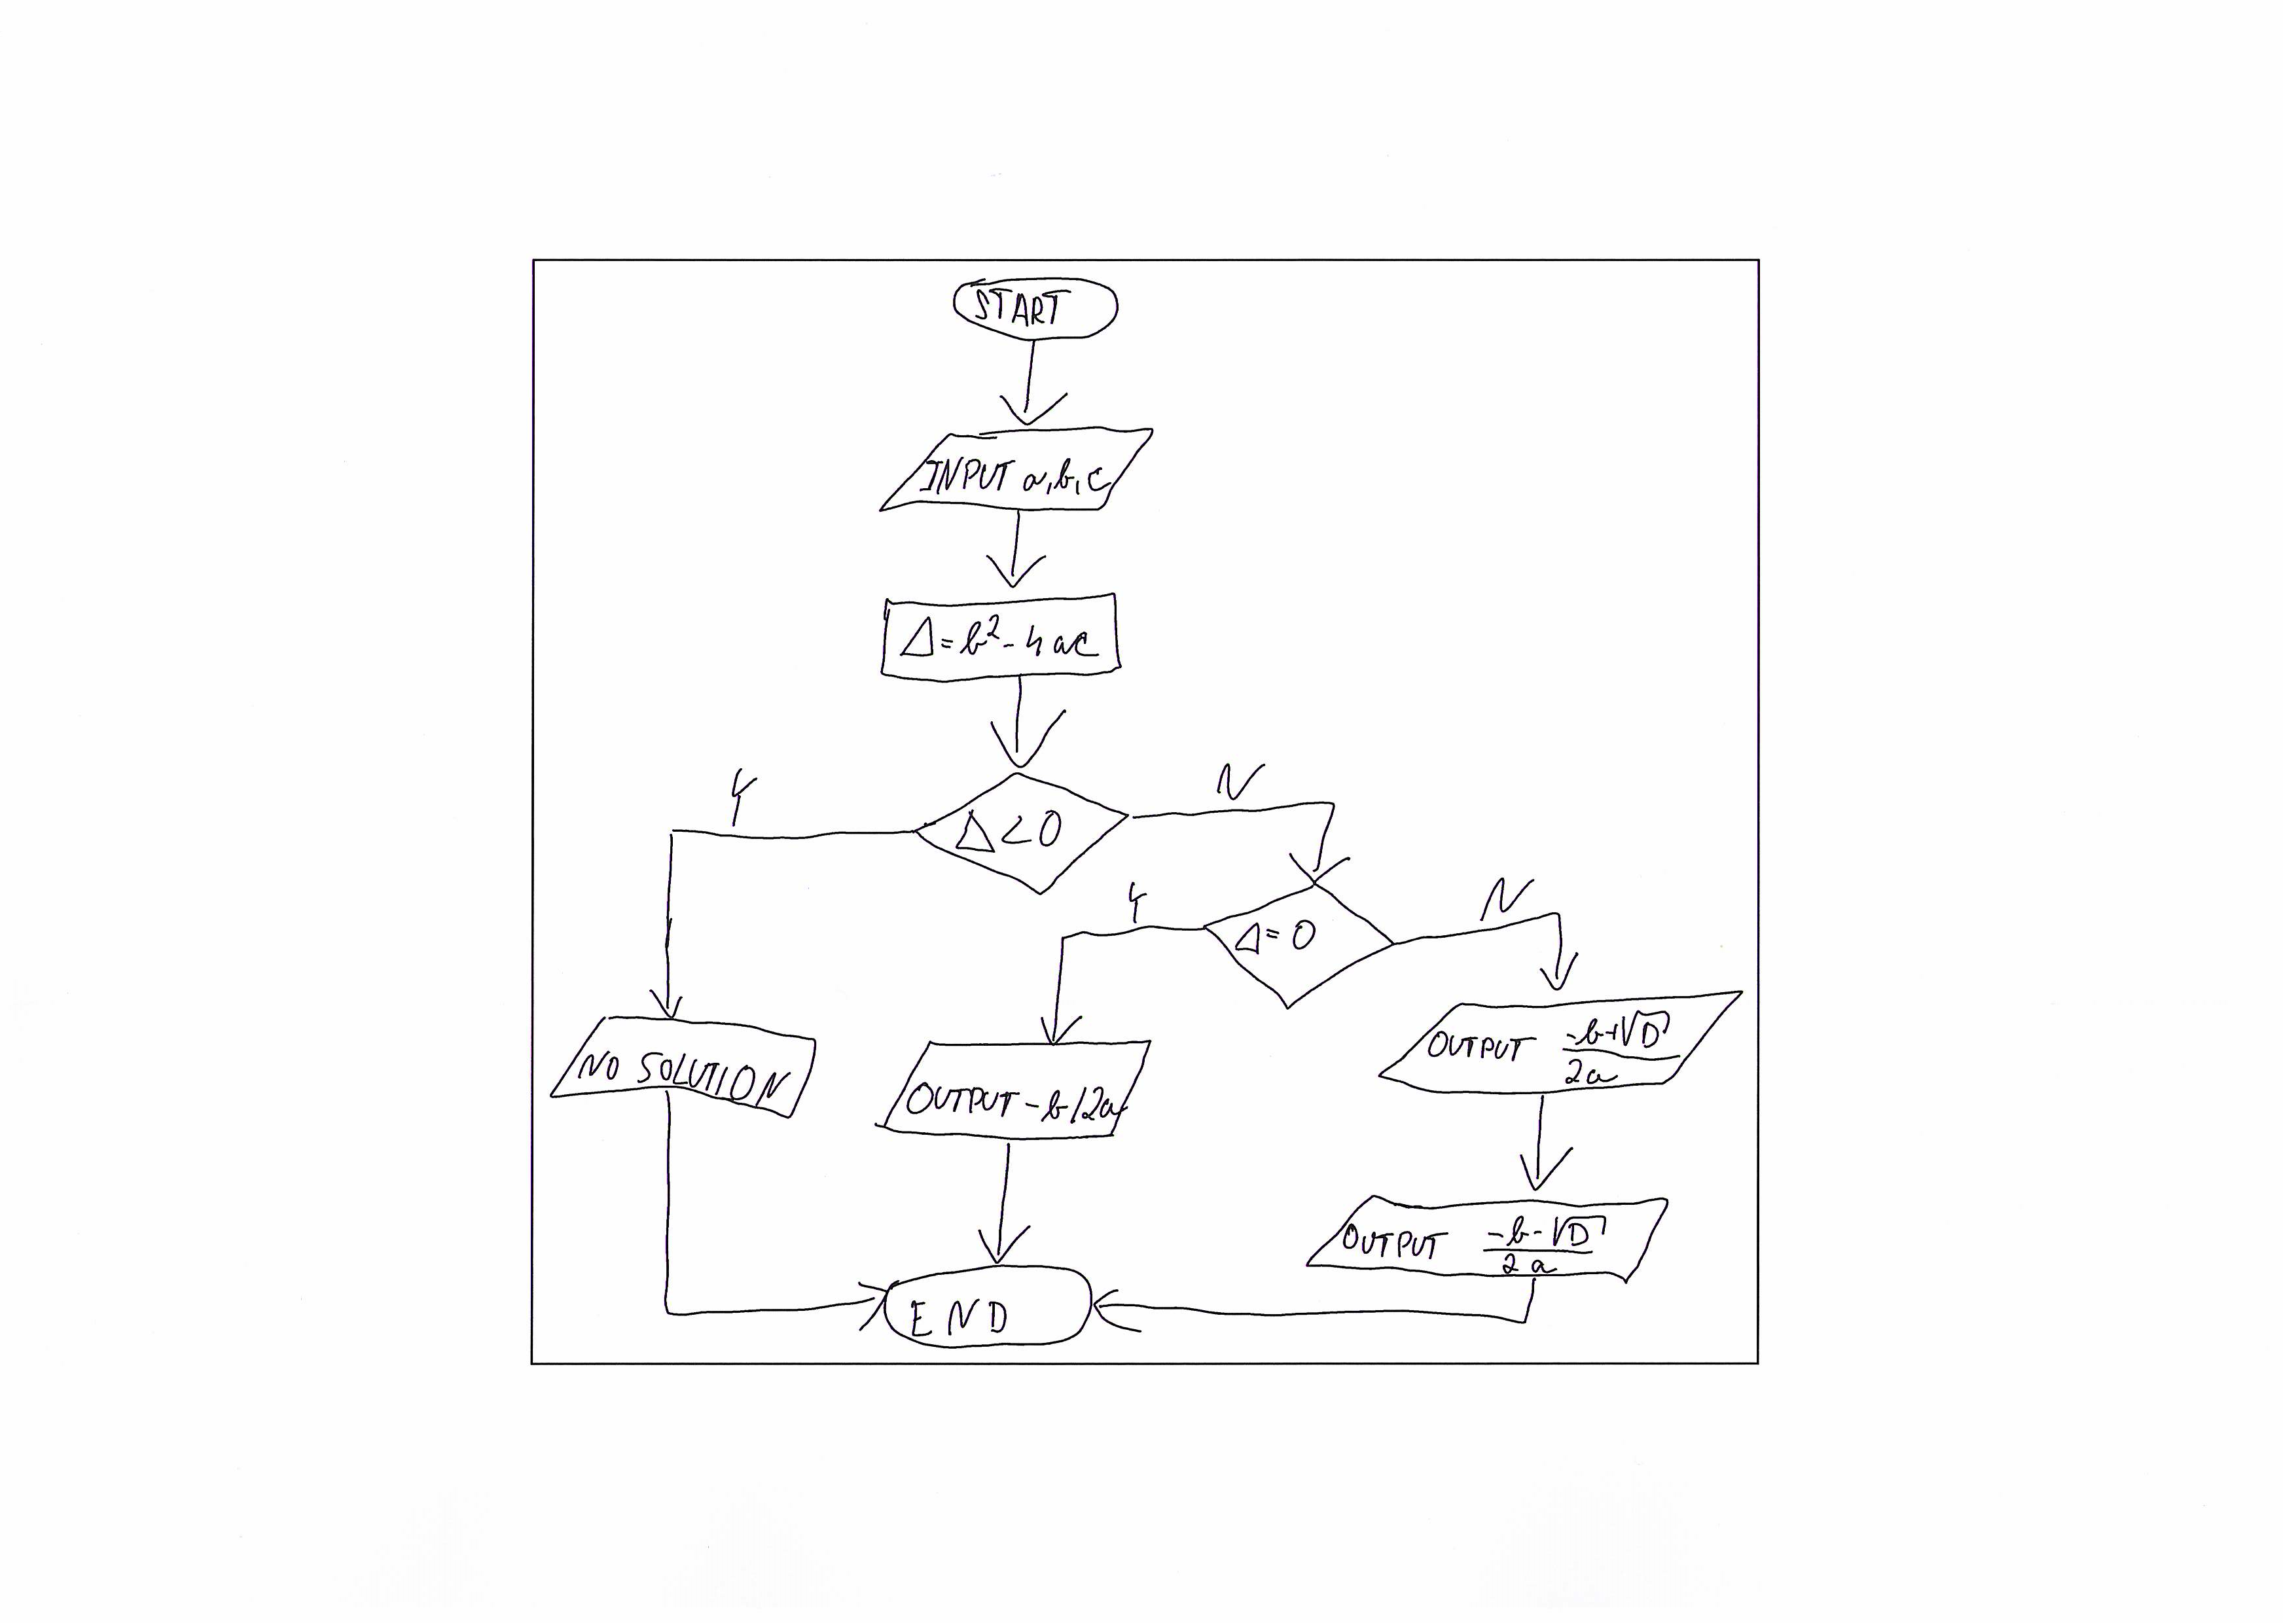 START
INPUT a,b,c
Δ=b²-4ac
Y
Δ<0
N
Y
Δ=0
N
NO SOLUTION
OUTPUT -b/2a
OUTPUT (-b+√D)/2a
OUTPUT (-b-√D)/2a
END